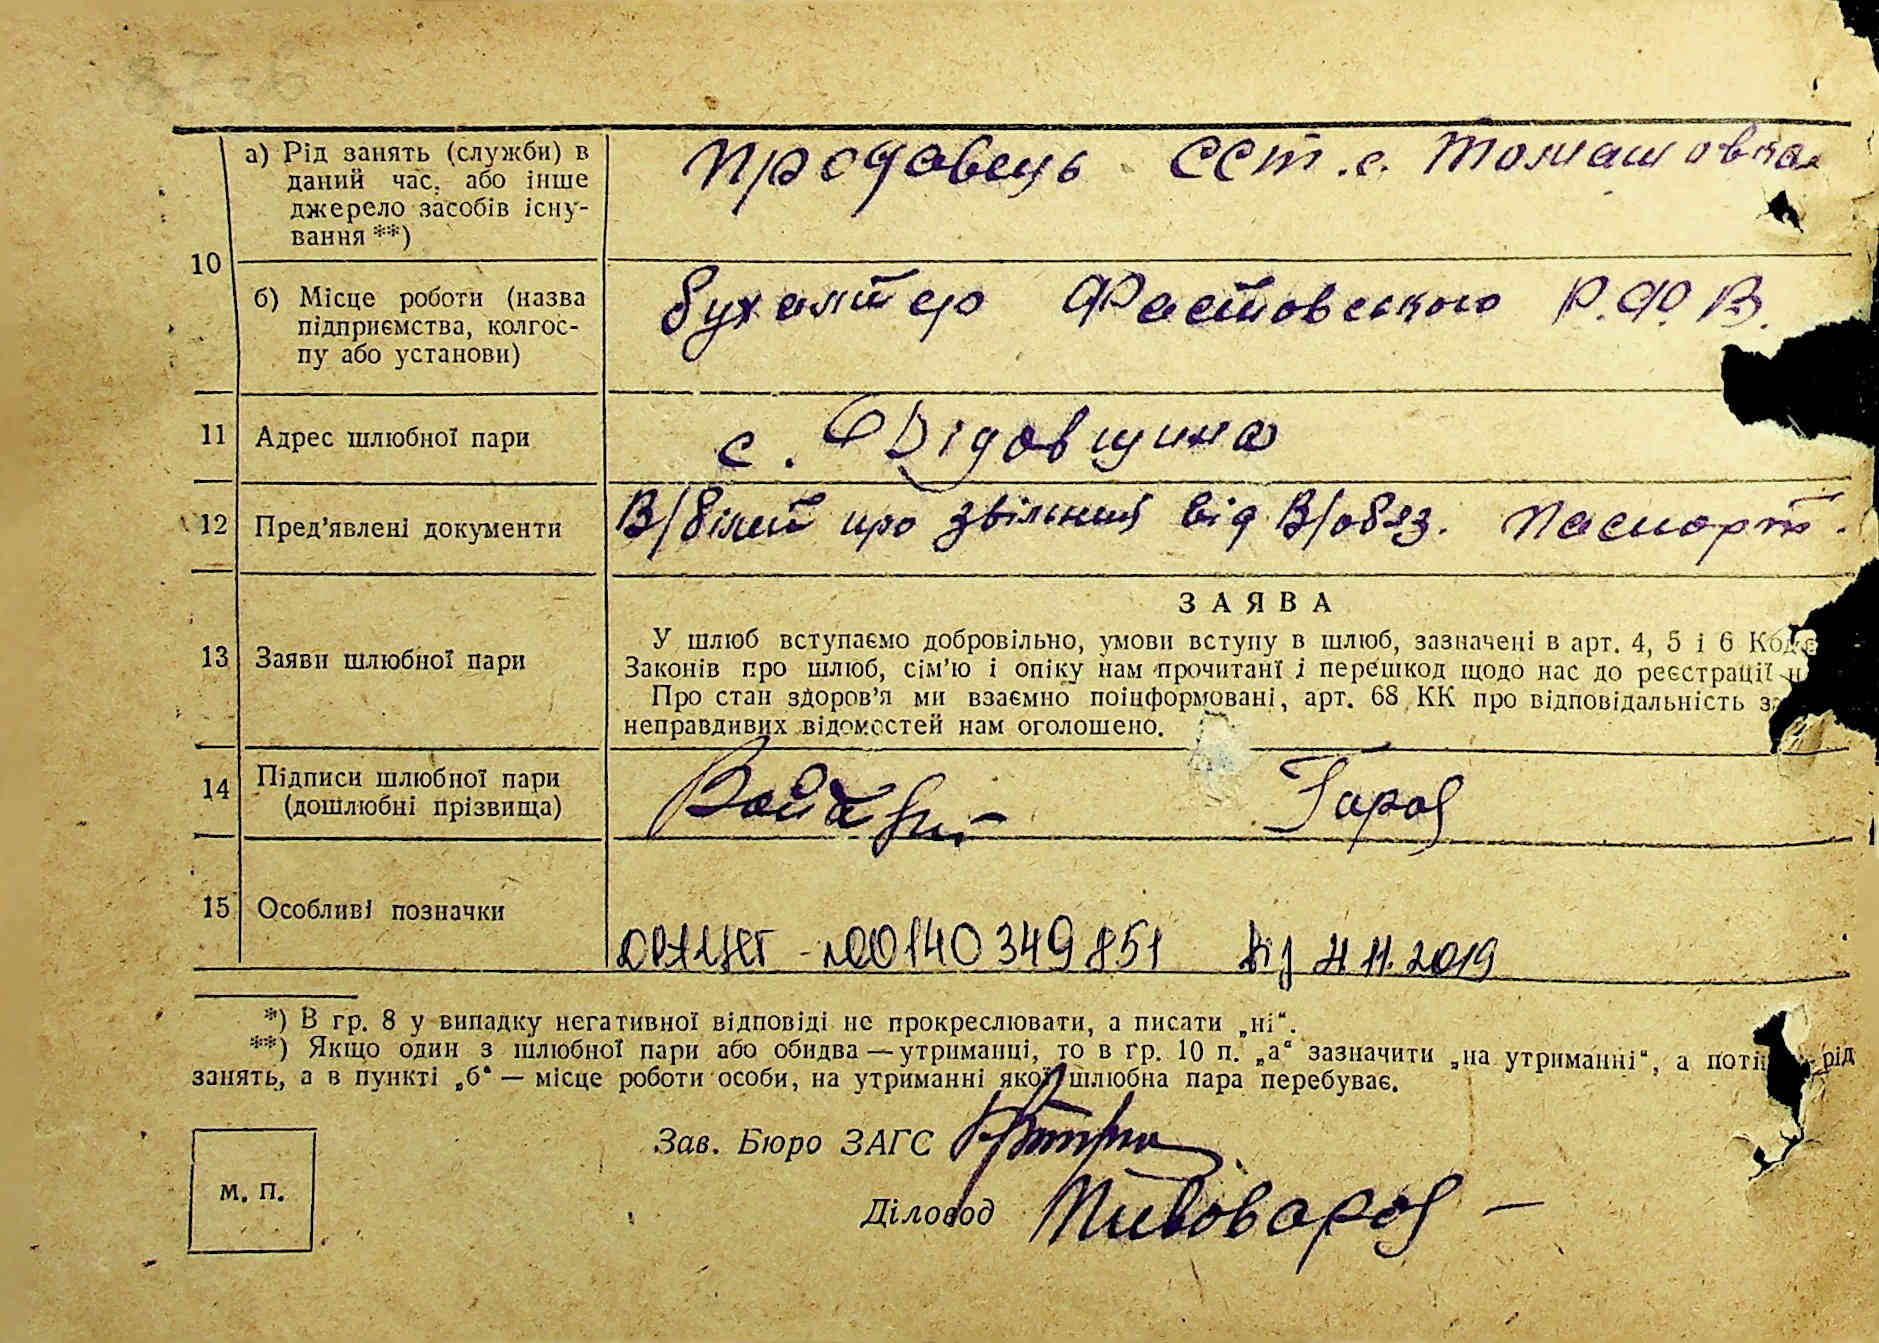 а) Рід занять (служби) в
даний час, або інше
джерело засобів існу-
вання **)
продавець ССт. с. Томашовка
10
б) Місце роботи (назва
підприємства, колгос-
пу або установи)
бухалтер Фастовського Р.Ф.В.
11 Адрес шлюбної пари
с. Дідовщина
12 Пред'явлені документи
В/білет про звільнен від В/обяз. Паспорт.
13 Заяви шлюбної пари
ЗАЯВА
У шлюб вступаємо добровільно, умови вступу в шлюб, зазначені в арт. 4, 5 і 6
Законів про шлюб, сім'ю і опіку нам прочитані і перешкод щодо нас до реєстрації
Про стан здоров'я ми взаємно поінформовані, арт. 68 КК про відповідальність
неправдивих відомостей нам оголошено.
14 Підписи шлюбної пари
(дошлюбні прізвища)
15 Особливі позначки
00140349851 від 11.2019
*) В гр. 8 у випадку негативної відповіді не прокреслювати, а писати „ні“.
**) Якщо один з шлюбної пари або обидва — утриманці, то в гр. 10 п. „а“ зазначити „на утриманні“, а рід
занять, а в пункті „б“ — місце роботи особи, на утриманні якої шлюбна пара перебуває.
Зав. Бюро ЗАГС
м. п.
Діловод Пивовар